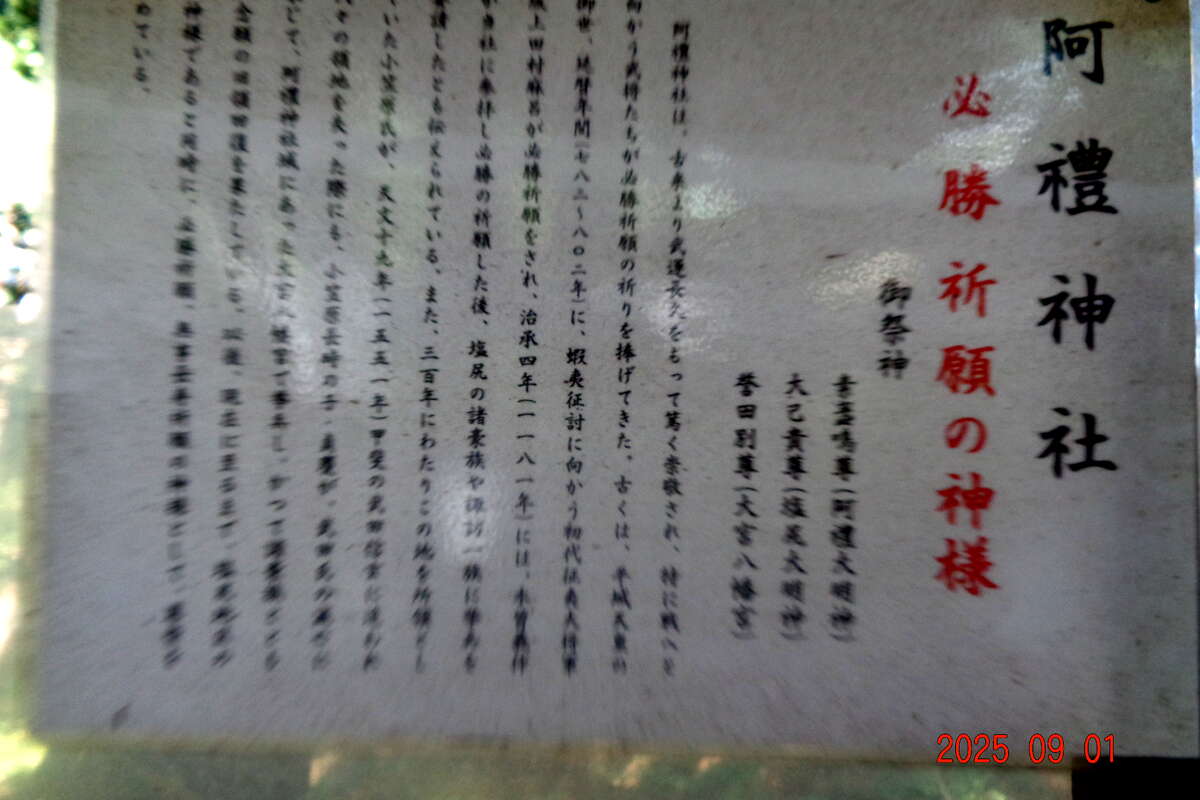 阿禮神社
必勝祈願の神様
御祭神
素盞嗚尊(阿禮大明神)
大己貴尊(塩尻大明神)
誉田別尊(大宮八幡宮)
阿禮神社は、古来より武運長久をもって篤く崇敬され、特に戦へと
向かう武将たちが必勝祈願の祈りを捧げてきた。古くは、平城天皇の
御世、延暦年間(七八二~八〇二年)に、蝦夷征討に向かう初代征夷大将軍
坂上田村麻呂が必勝祈願をされ、治承四年(一一八一年)には、木曽義仲
が当社に参拝し必勝の祈願した後、塩尻の諸豪族や諏訪一族に挙兵を
要請したとも伝えられている。また、三百年にわたりこの地を所領とし
ていた小笠原氏が、天文十九年(一五五一年)甲斐の武田信玄に追われ
の領地を失った際にも、小笠原長時の子・貞慶が、武田氏の滅亡に
して、阿禮神社域にあった大宮八幡宮で挙兵し、かつて
念願の旧領回復を果たしている。以後、現在に至るまで、塩尻
神様であると同時に、必勝祈願、祈願の神様として、
めている。
2025 09 01